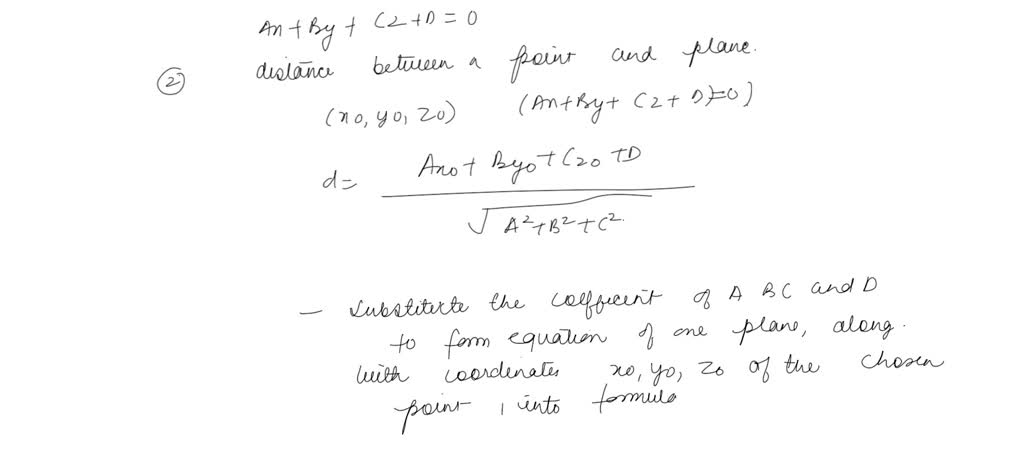 An + By + Cz + D = 0
② distance between a point and plane.
(x0, y0, z0) (An + By + Cz + D = 0)
d = Ax0 + By0 + Cz0 + D
√A²+B²+C²
— Substitute the coefficent of A B C and D
to form equation of one plane, along.
with coordenates x0, y0, z0 of the chosen
point, into formula